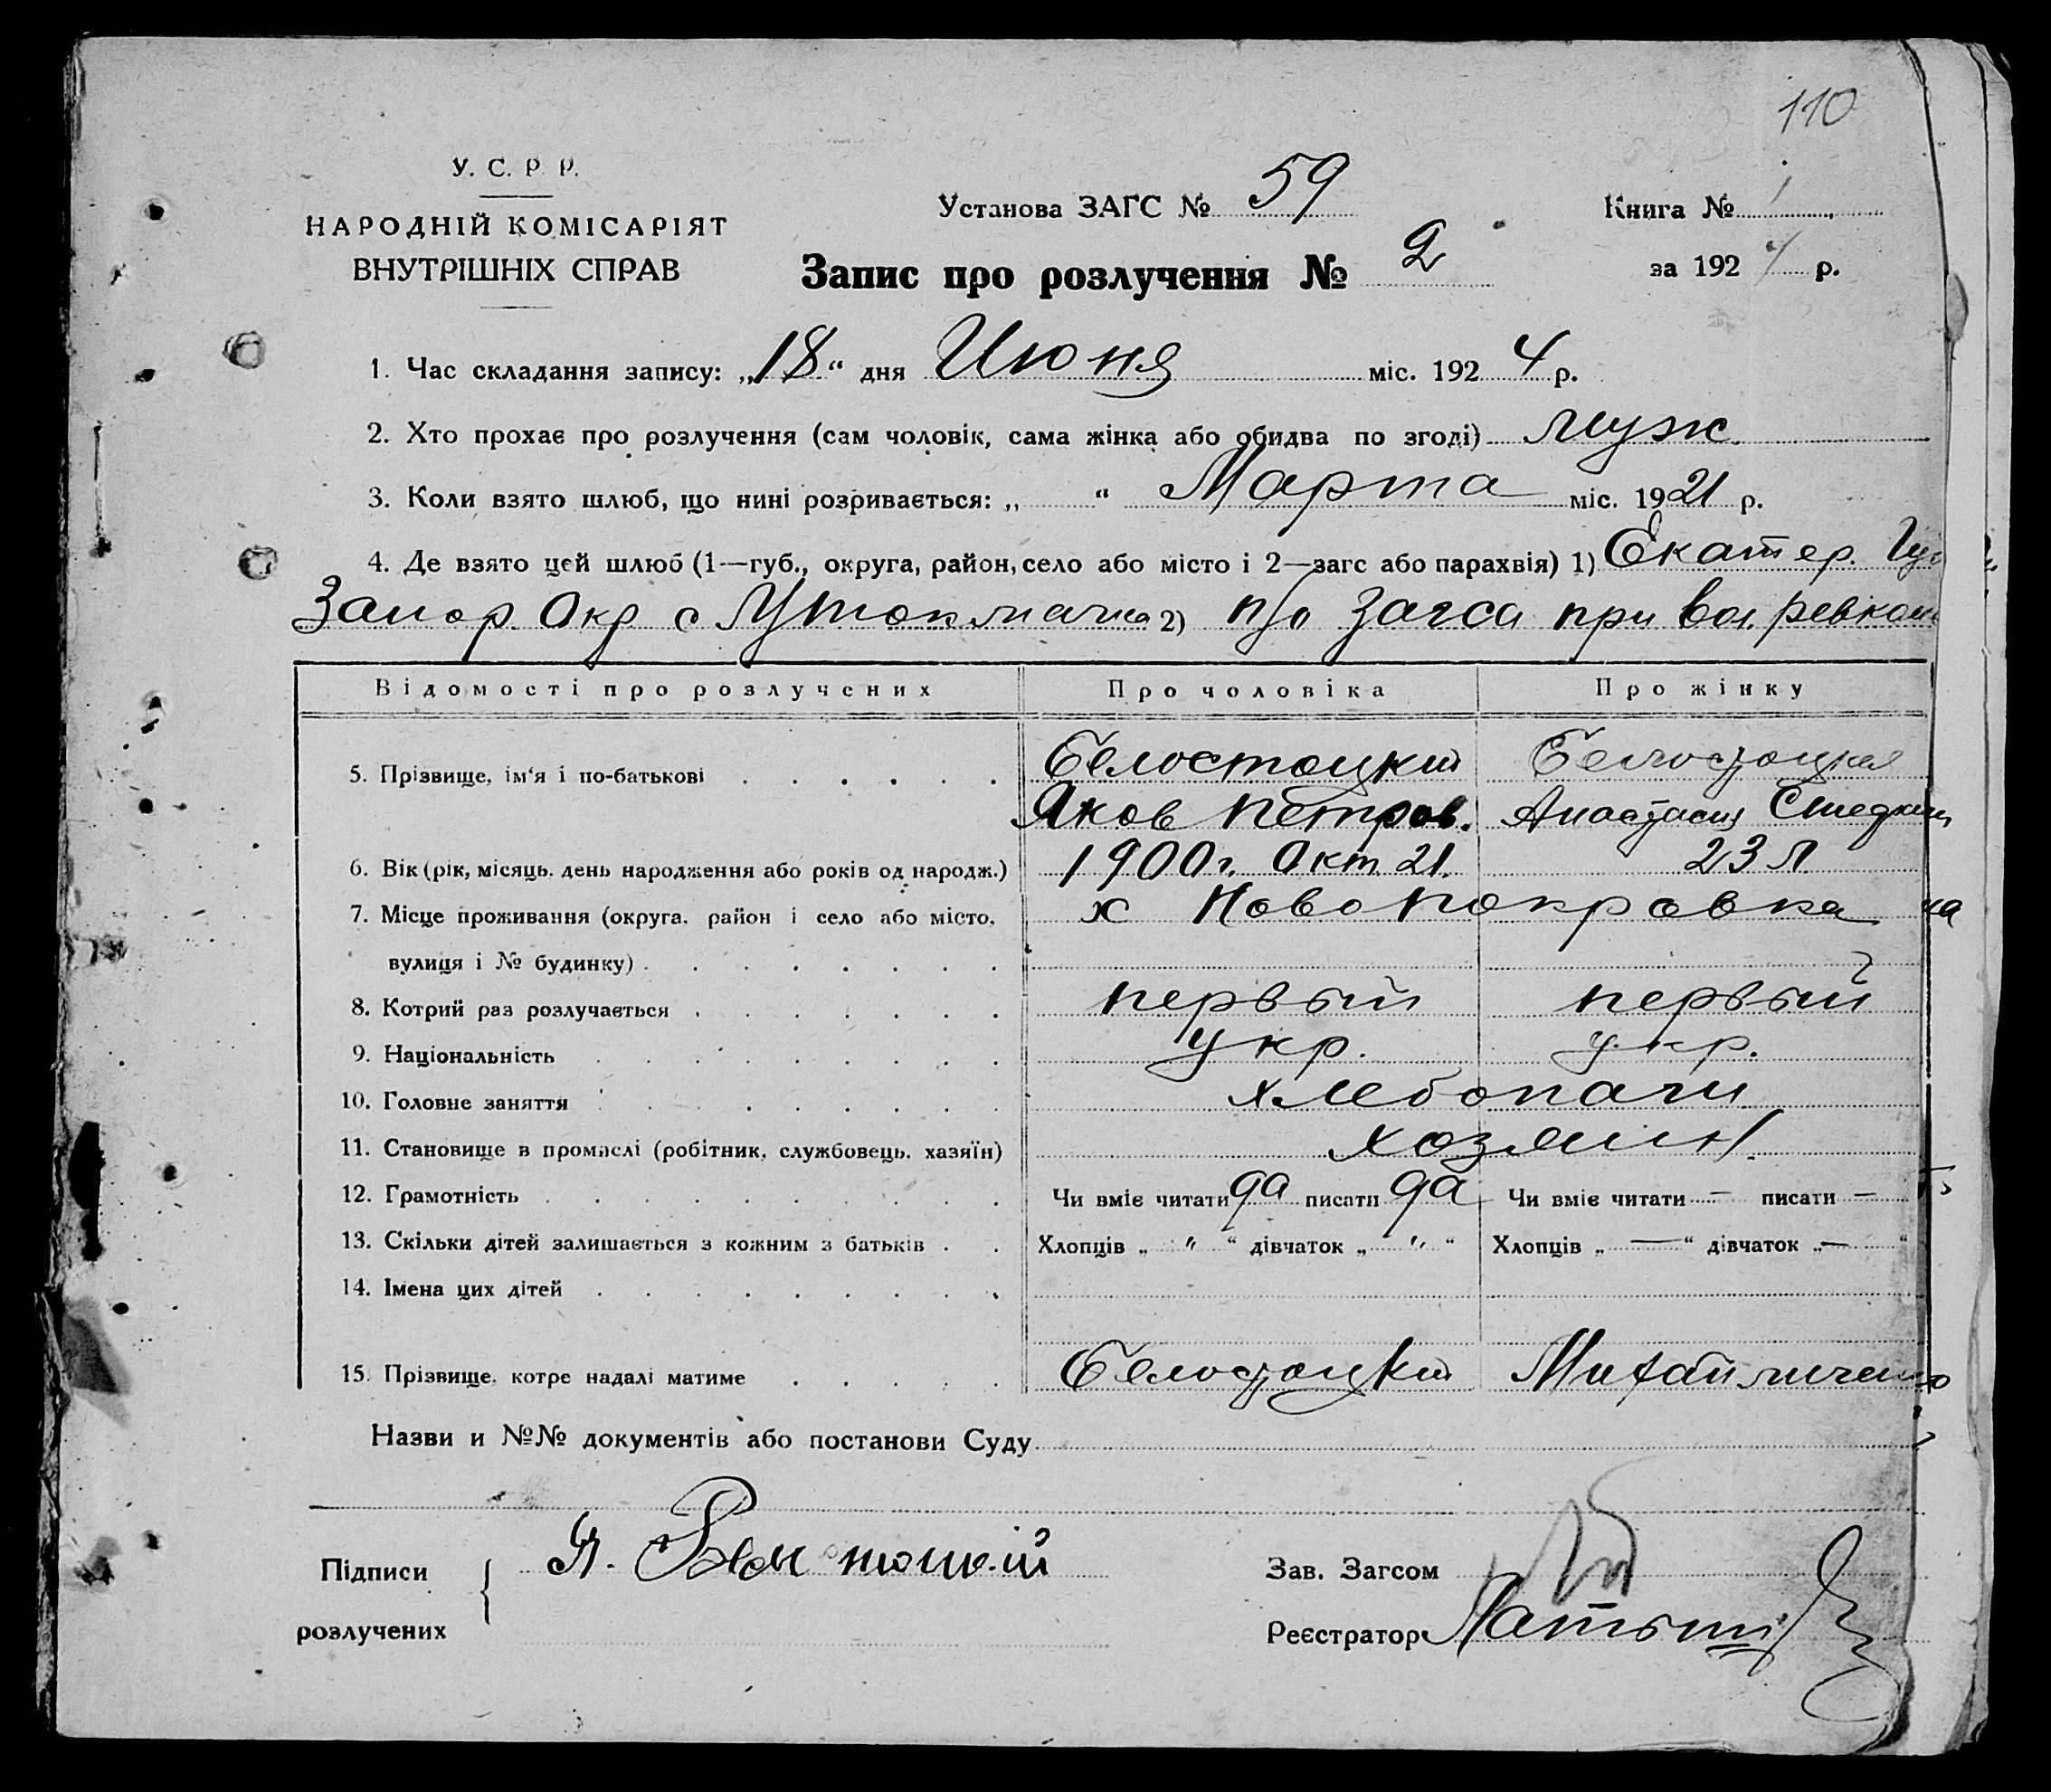 110
У. С. Р. Р.
НАРОДНІЙ КОМІСАРІЯТ
ВНУТРІШНІХ СПРАВ
Установа ЗАГС № 59
Книга № 1
Запис про розлучення № 2
за 1924 р.
1. Час складання запису: „18“ дня Июня міс. 1924 р.
2. Хто прохає про розлучення (сам чоловік, сама жінка або обидва по згоді) муж
3. Коли взято шлюб, що нині розривається: „ “ Марта міс. 1921 р.
4. Де взято цей шлюб (1—губ., округа, район, село або місто і 2—загс або парахвія) 1) Екатер.
Запор. Окр с 2) п/о Загса при вол. ревком
Відомості про розлучених Про чоловіка Про жінку
5. Прізвище, ім'я і по-батькові Белостоцкий Белостоцкая
Яков Петров. Анастасия
6. Вік (рік, місяць, день народження або років од народж.) 1900 г. Окт. 21. 23 л
7. Місце проживання (округа, район і село або місто, х Новопокровка
вулиця і № будинку)
8. Котрий раз розлучається первый первый
9. Національність укр. укр.
10. Головне заняття хлебопаш
11. Становище в промислі (робітник, службовець, хазяїн) хозяин
12. Грамотність Чи вміє читати да писати да Чи вміє читати — писати —
13. Скільки дітей залишається з кожним з батьків Хлопців „ " “ дівчаток „ " “ Хлопців „ — “ дівчаток „ — “
14. Імена цих дітей
15. Прізвище, котре надалі матиме Белостоцкий Михайличенко
Назви и №№ документів або постанови Суду
Підписи Я.
розлучених
Зав. Загсом
Реєстратор